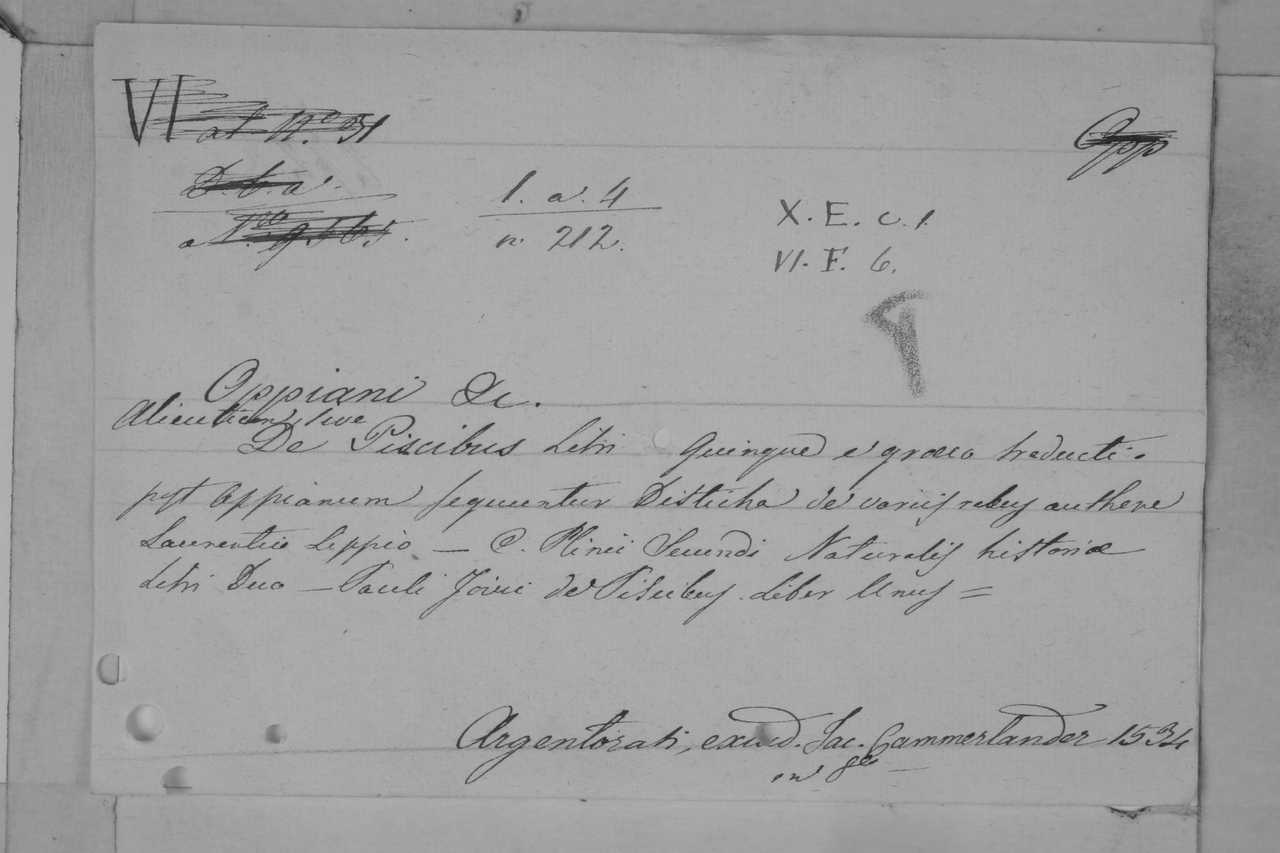 VI at N.º 31
Opp
D. b. a.
N.ro 9565.
1. a. 4
n. 212.
X. E. c. 1.
VI. F. 6.
Oppiani &c.
Alieuticon, sive
De Piscibus Libri Quinque e' græco traducti.
pst Oppianum sequuntur Disticha de variis rebus authore
Laurentio Lippio — C. Plinii Secundi Naturalis historiæ
Libri Duo — Pauli Jovii de Piscibus Liber Unus =
Argentorati, excud. Jac. Cammerlander 1534
in 8º —